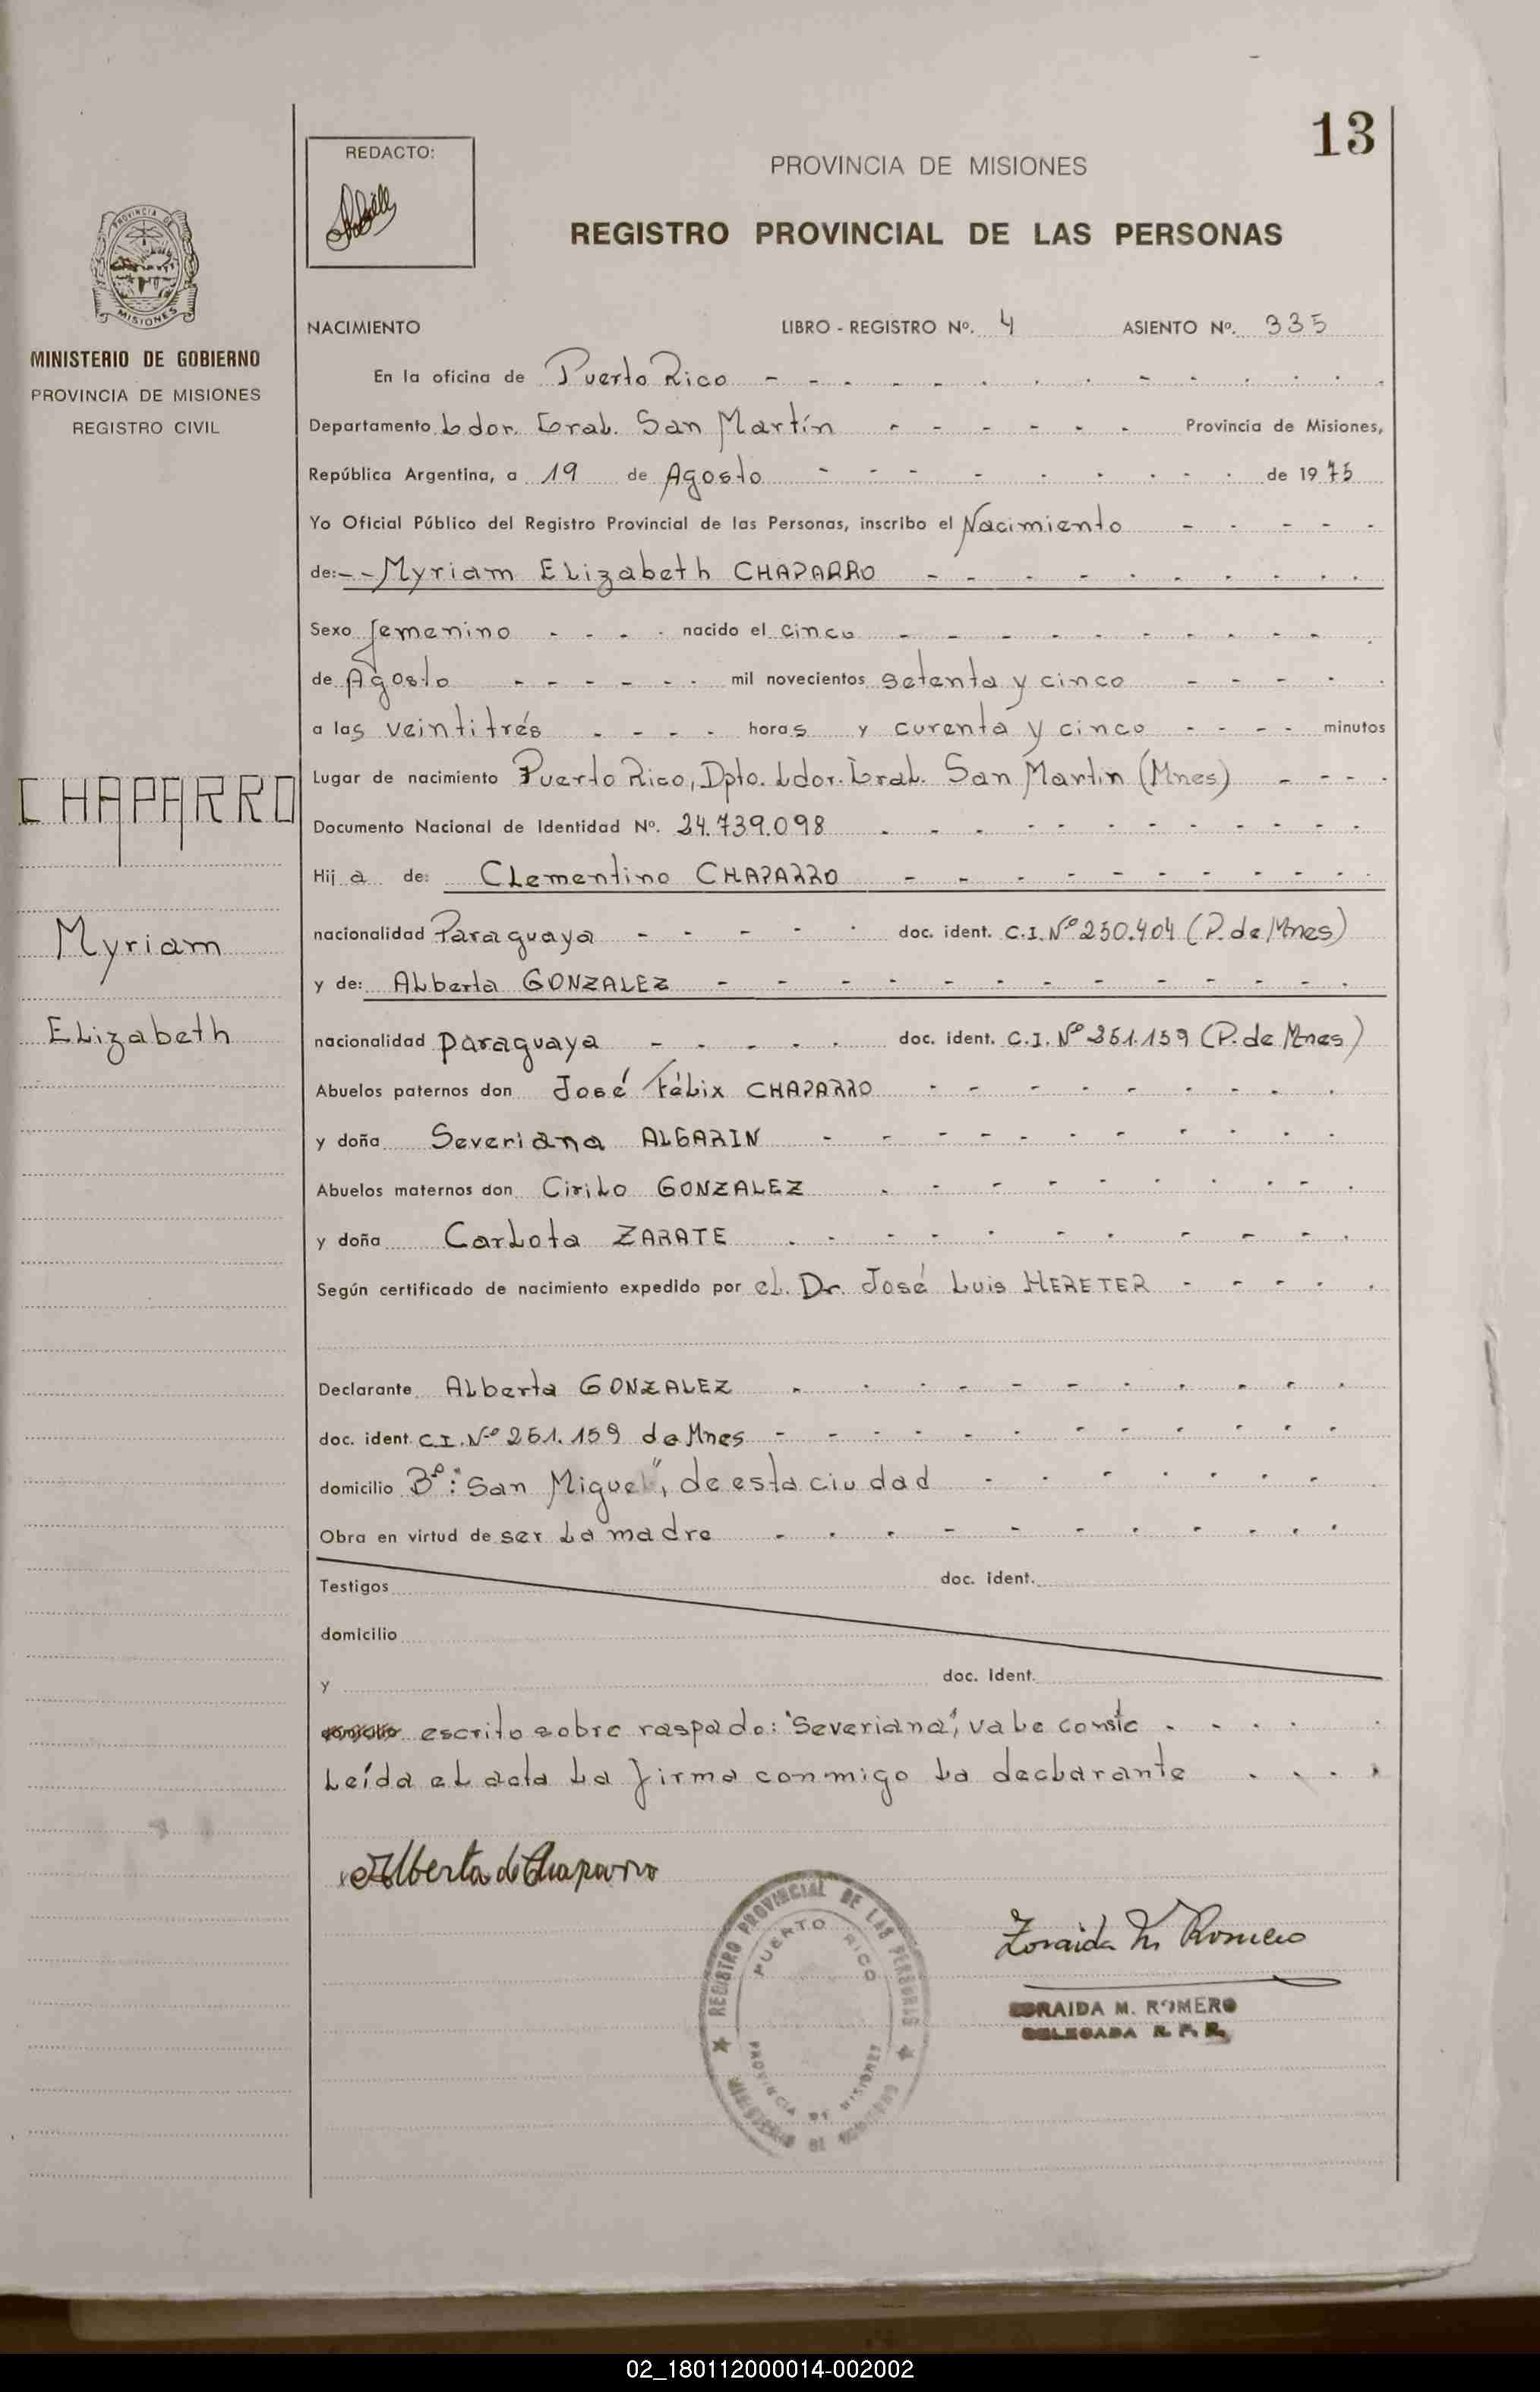 13
REDACTO:
PROVINCIA DE MISIONES
REGISTRO PROVINCIAL DE LAS PERSONAS
PROVINCIA DE
MISIONES
MINISTERIO DE GOBIERNO
PROVINCIA DE MISIONES
REGISTRO CIVIL
CHAPARRO
Myriam
Elizabeth
NACIMIENTO LIBRO - REGISTRO Nº. 4 ASIENTO Nº. 335
En la oficina de Puerto Rico
Departamento Ldor. Gral. San Martín Provincia de Misiones,
República Argentina, a 19 de Agosto de 1975
Yo Oficial Público del Registro Provincial de las Personas, inscribo el Nacimiento
de: Myriam Elizabeth CHAPARRO
Sexo femenino nacido el cinco
de Agosto mil novecientos setenta y cinco
a las veintitrés horas y curenta y cinco minutos
Lugar de nacimiento Puerto Rico, Dpto. Ldor. Gral. San Martin (Mnes)
Documento Nacional de Identidad Nº. 24.739.098
Hija de: Clementino CHAPARRO
nacionalidad Paraguaya doc. ident. C.I. Nº 250.404 (P. de Mnes)
y de: Alberta GONZALEZ
nacionalidad paraguaya doc. ident. C.I. Nº 261.159 (P. de Mnes)
Abuelos paternos don José Félix CHAPARRO
y doña Severiana ALGARIN
Abuelos maternos don Cirilo GONZALEZ
y doña Carlota ZARATE
Según certificado de nacimiento expedido por el. Dr. José Luis HERETER
Declarante Alberta GONZALEZ
doc. ident. C.I. Nº 261.159 de Mnes
domicilio Bº: "San Miguel", de esta ciudad
Obra en virtud de ser la madre
Testigos doc. ident.
domicilio
y doc. Ident.
domicilio escrito sobre raspado: "Severiana", vale conste
Leída el acta la firma conmigo la declarante
Alberta de Chaparro
REGISTRO PROVINCIAL DE LAS PERSONAS
PUERTO RICO
PROVINCIA DE MISIONES
MINISTERIO DE GOBIERNO
Zoraida M. Romero
ZORAIDA M. ROMERO
DELEGADA R. P. P.
02_180112000014-002002